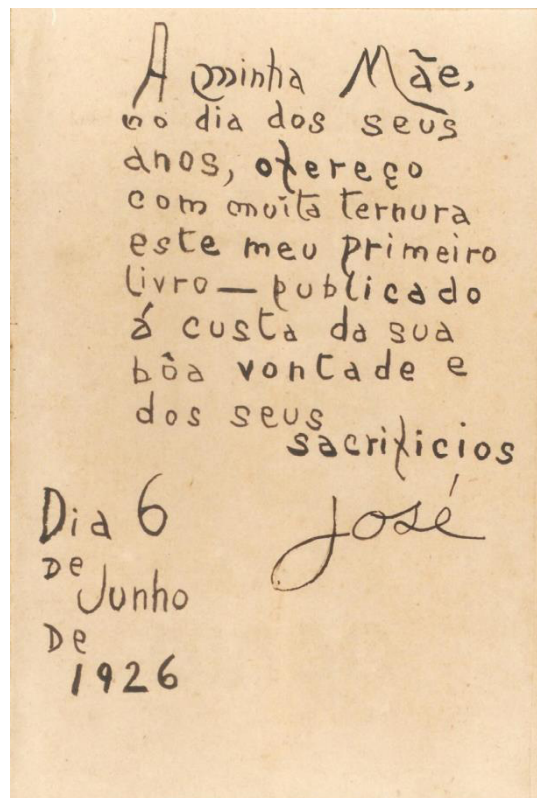 A minha Mãe,
no dia dos seus
anos, ofereço
com muita ternura
este meu primeiro
livro — publicado
á custa da sua
bôa vontade e
dos seus
sacrificios
José
Dia 6
de
Junho
De
1926